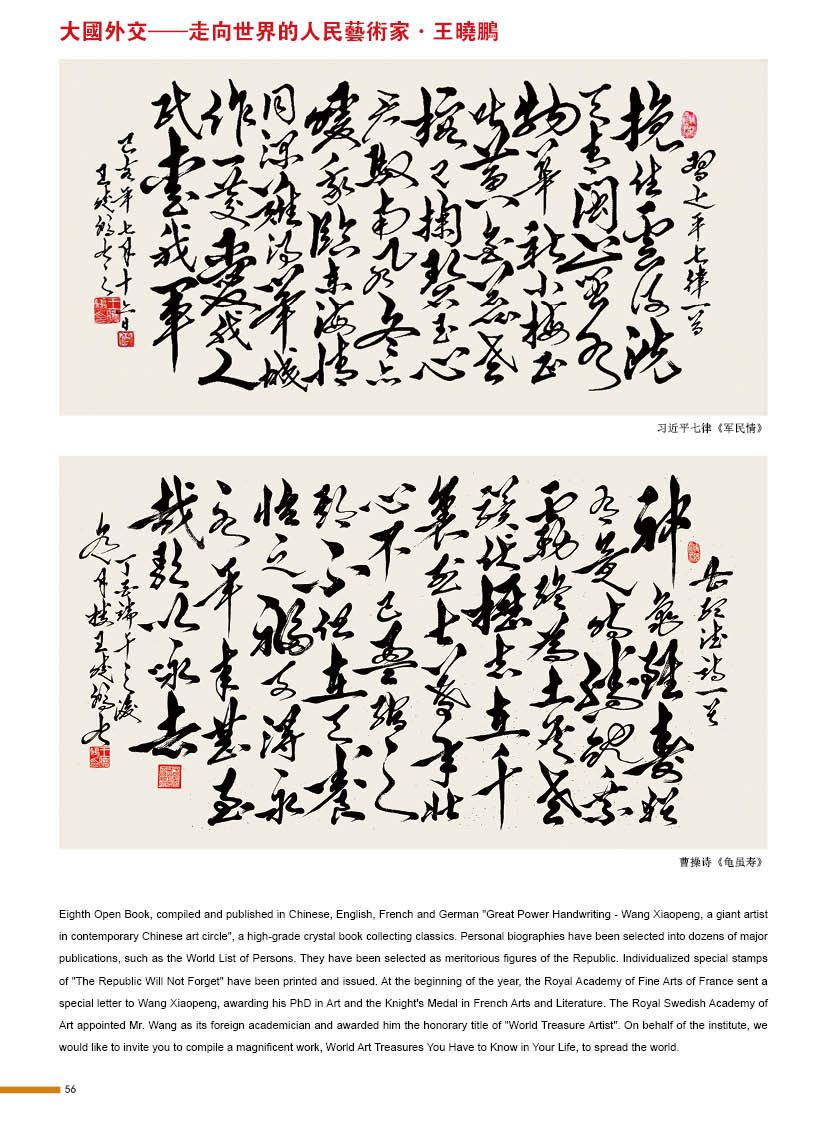 大國外交——走向世界的人民藝術家·王曉鵬
習近平七律一首
挽住雲河洗
天青閩山閩水
物華新小梅正
吐黄金蕊老
榕已掬碧玉心
君馭南風冬亦
暖我臨東海情
同深難得举城
作一慶愛我人
民愛我軍
己亥年七月十六日
王曉鵬书之
习近平七律《军民情》
孟德诗一首
神龜雖壽猶
有竟時騰蛇乘
霧終為土灰老
驥伏櫪志在千
里烈士暮年壯
心不已盈縮之
期不但在天養
怡之福可得永
年幸甚至
哉歌以詠志
丁酉端午之後
月楼王曉鵬书
曹操诗《龟虽寿》
Eighth Open Book, compiled and published in Chinese, English, French and German "Great Power Handwriting - Wang Xiaopeng, a giant artist
in contemporary Chinese art circle", a high-grade crystal book collecting classics. Personal biographies have been selected into dozens of major
publications, such as the World List of Persons. They have been selected as meritorious figures of the Republic. Individualized special stamps
of "The Republic Will Not Forget" have been printed and issued. At the beginning of the year, the Royal Academy of Fine Arts of France sent a
special letter to Wang Xiaopeng, awarding his PhD in Art and the Knight's Medal in French Arts and Literature. The Royal Swedish Academy of
Art appointed Mr. Wang as its foreign academician and awarded him the honorary title of "World Treasure Artist". On behalf of the institute, we
would like to invite you to compile a magnificent work, World Art Treasures You Have to Know in Your Life, to spread the world.
56